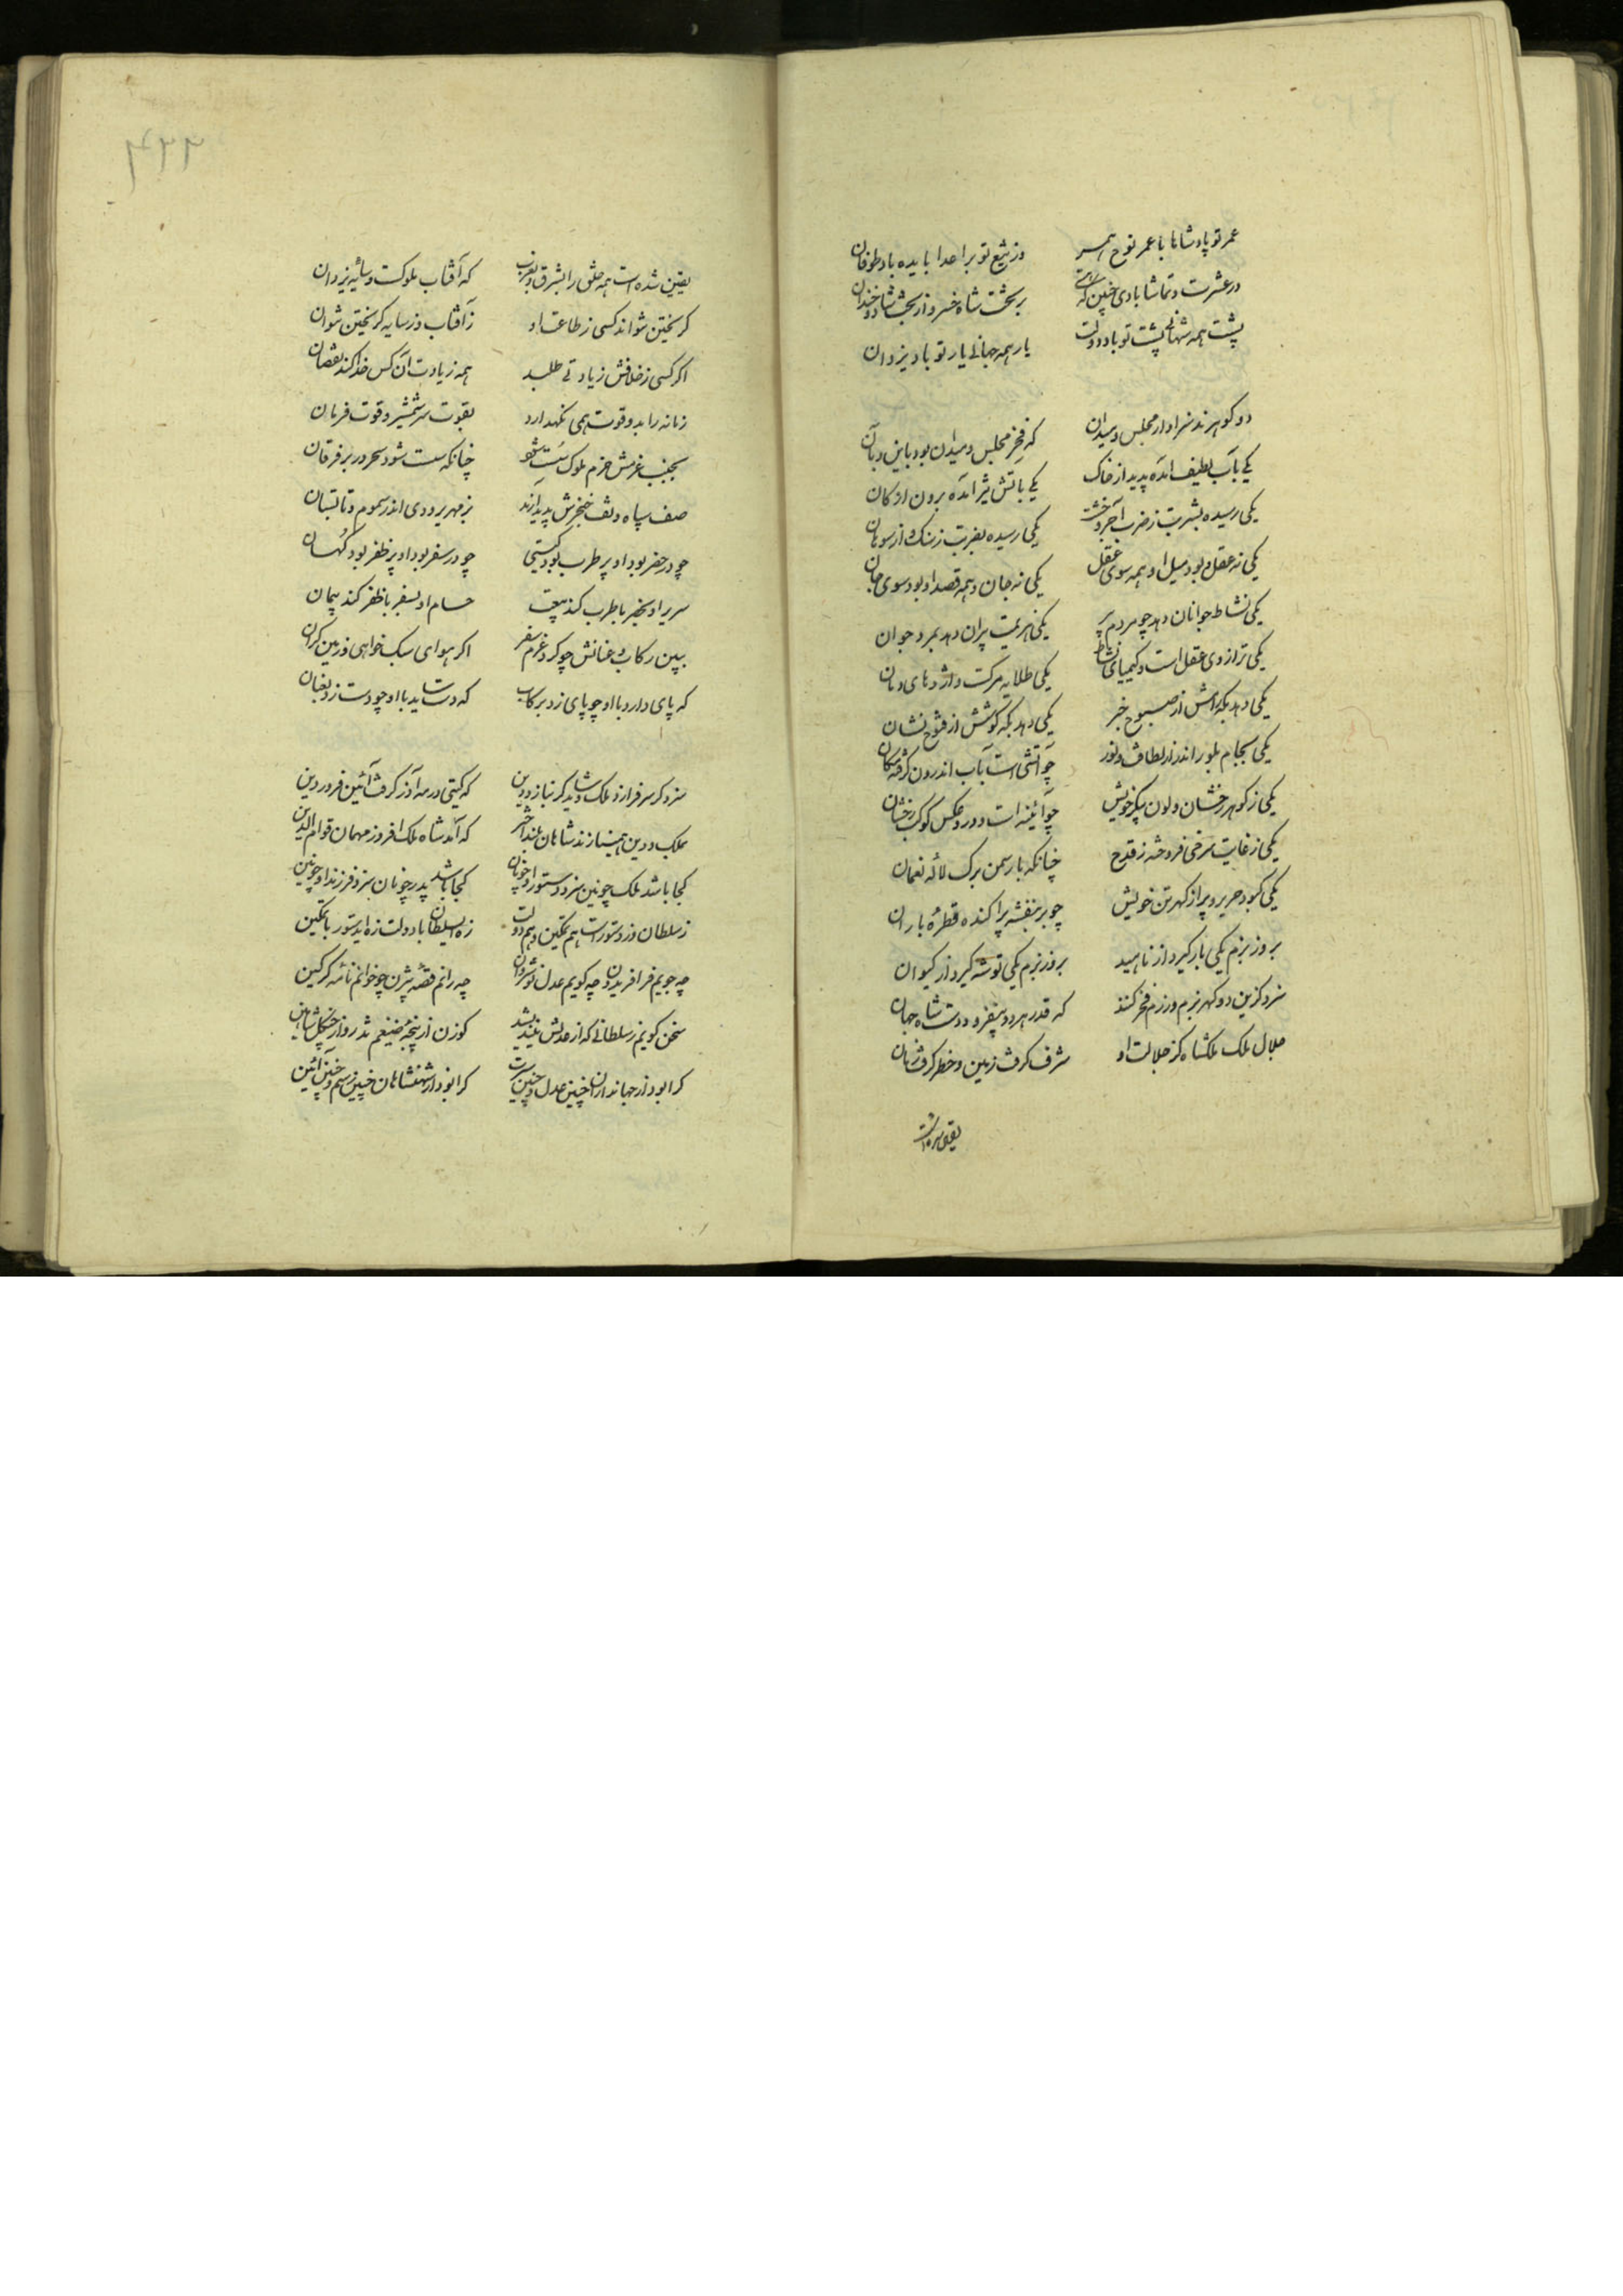 عمر تو پادشاها با عمر نوح همسر وز تیغ تو بر اعدا بایده باد طوفان
در عشرت و تماشا بادی چنین که هستی بر تخت شاه خسرو از بخت شاد و خندان
پشت همه شهانی پشت تو باد دولت یار همه جهانی یار تو باد یزدان
دو گوهرند سزاوار مجلس و میدان که فخر مجلس و میدان بود باین و بآن
یکی بآب لطیف آمده پدید از خاک یکی بآتش تیز آمده برون از کان
یکی رسیده بشربت ز ضرب آجر و خشت یکی رسیده بضربت ز سنک و از سوهان
یکی نه عقل و بود میل او همه سوی عقل یکی نه جان و همه قصد او بود سوی جان
یکی نشاط جوانان دهد چو مردم پیر یکی هزیمت پیران دهد بمرد جوان
یکی ترازوی عقل است و کیمیای نشاط یکی طلایه مرکست و اژدهای دمان
یکی دهد بکه رامش از صبوح خبر یکی دهد بکه کوشش از فتوح نشان
یکی بجام بلور اندر از لطافت و نور چو آتشی است بآب اندرون گرفته مکان
یکی ز گوهر رخشان و لون پیکر خویش چو آئینه است و درو عکس کوکب رخشان
یکی ز غایت سرخی فروخته ز قدح چنانکه بار سمن برک لاله نعمان
یکی کبود حریر و پر از گهر تن خویش چو بر بنفشه پراکنده قطره باران
بروز بزم یکی بار گیرد از ناهید بروز رزم یکی توشه گیرد از کیوان
سزد کزین دو گهر بزم و رزم فخر کنند که قدر هر دو بیفزود دست شاه جهان
جلال ملک ملکشاه کز جلالت او شرف گرفت زمین و خطر گرفت زمان
یقین شده است
۴۲۲
یقین شده است همه خلق را بشرق و بغرب که آفتاب ملوکست و سایه یزدان
گریختن نتواند کسی ز طاعت او ز آفتاب و ز سایه گریختن نتوان
اگر کسی ز خلافش زیادتی طلبد همه زیادت آن کس خدا کند نقصان
زمانه را بدو قوت همی نگهدارد بقوت سر شمشیر و قوت فرمان
بجنب عزمش حزم ملوک سست شود چنانکه سست شود سحر در بر فرقان
صف سپاه و تف خنجرش پدید آرند بزمهریر و دی اندر سموم و تابستان
چو در حضر بود او پر طرب بود گیتی چو در سفر بود او پر ظفر بود گیهان
سریر او بحضر با طرب کند بیعت حسام او بسفر با ظفر کند پیمان
ببین رکاب و عنانش چو کرد عزم سفر اگر هوای سبک خواهی و زمین گران
که پای دارد با او چو پای زد برکاب که دست ساید با او چو دست زد بعنان
سزد گر سر فرازد ملک و شاید گر بنازد دین که گیتی در مه آذر گرفت آئین فروردین
بملک و دین همینازند شاهان بلند اختر که آمد شاه ملک افروز مهمان قوام الدین
کجا باشد ملک چونین سزد دستور او چونان کجا باشد پدر چونان سزد فرزند او چونین
ز سلطان وز دستور است هم تمکین و هم دولت زه ای سلطان با دولت زه ای دستور با تمکین
چه جویم فر افریدون چه گویم عدل نوشروان چه رانم قصه بیژن چو خوانم نامه گرگین
سخن گویم ز سلطانی که از عدلش نیندیشد گوزن از پنجه ضیغم تذرو از چنگل شاهین
کرا بود از جهانداران چنین عدل و چنین سیرت کرا بود از شهنشاهان چنین رسم و چنین آئین